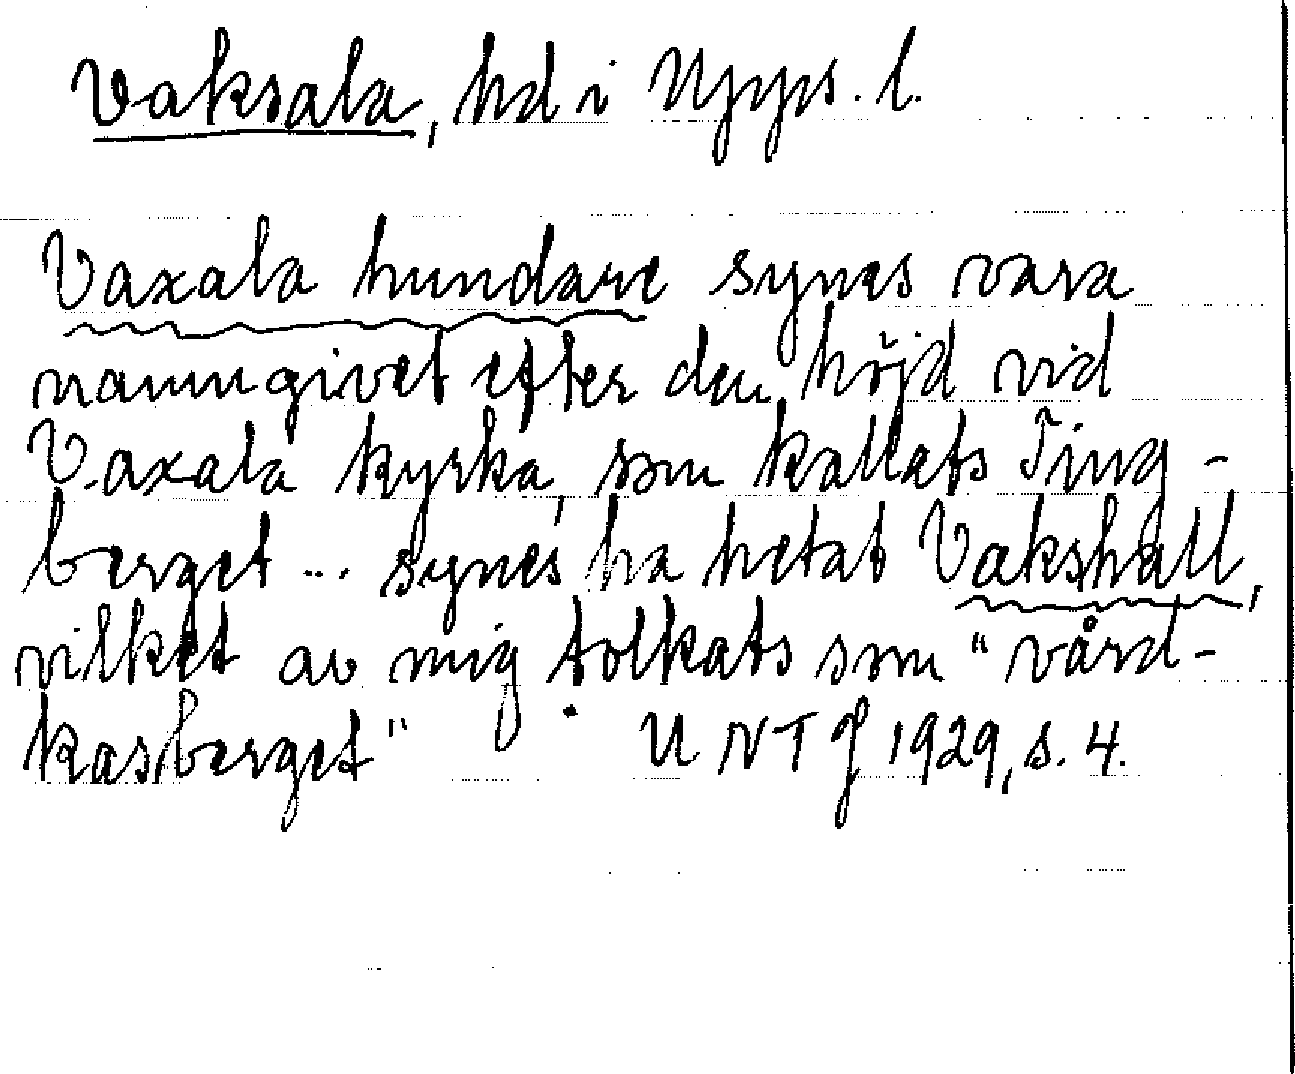 Vaksala, hd i Upps. l.
Vaxala hundare synes vara
namngivet efter den höjd vid
Vaxala kyrka, som kallats Ting-
berget ... synes ha hetat Vakshall,
vilket av mig tolkats som "vård-
kasberget". UNT J 1929, s. 4.